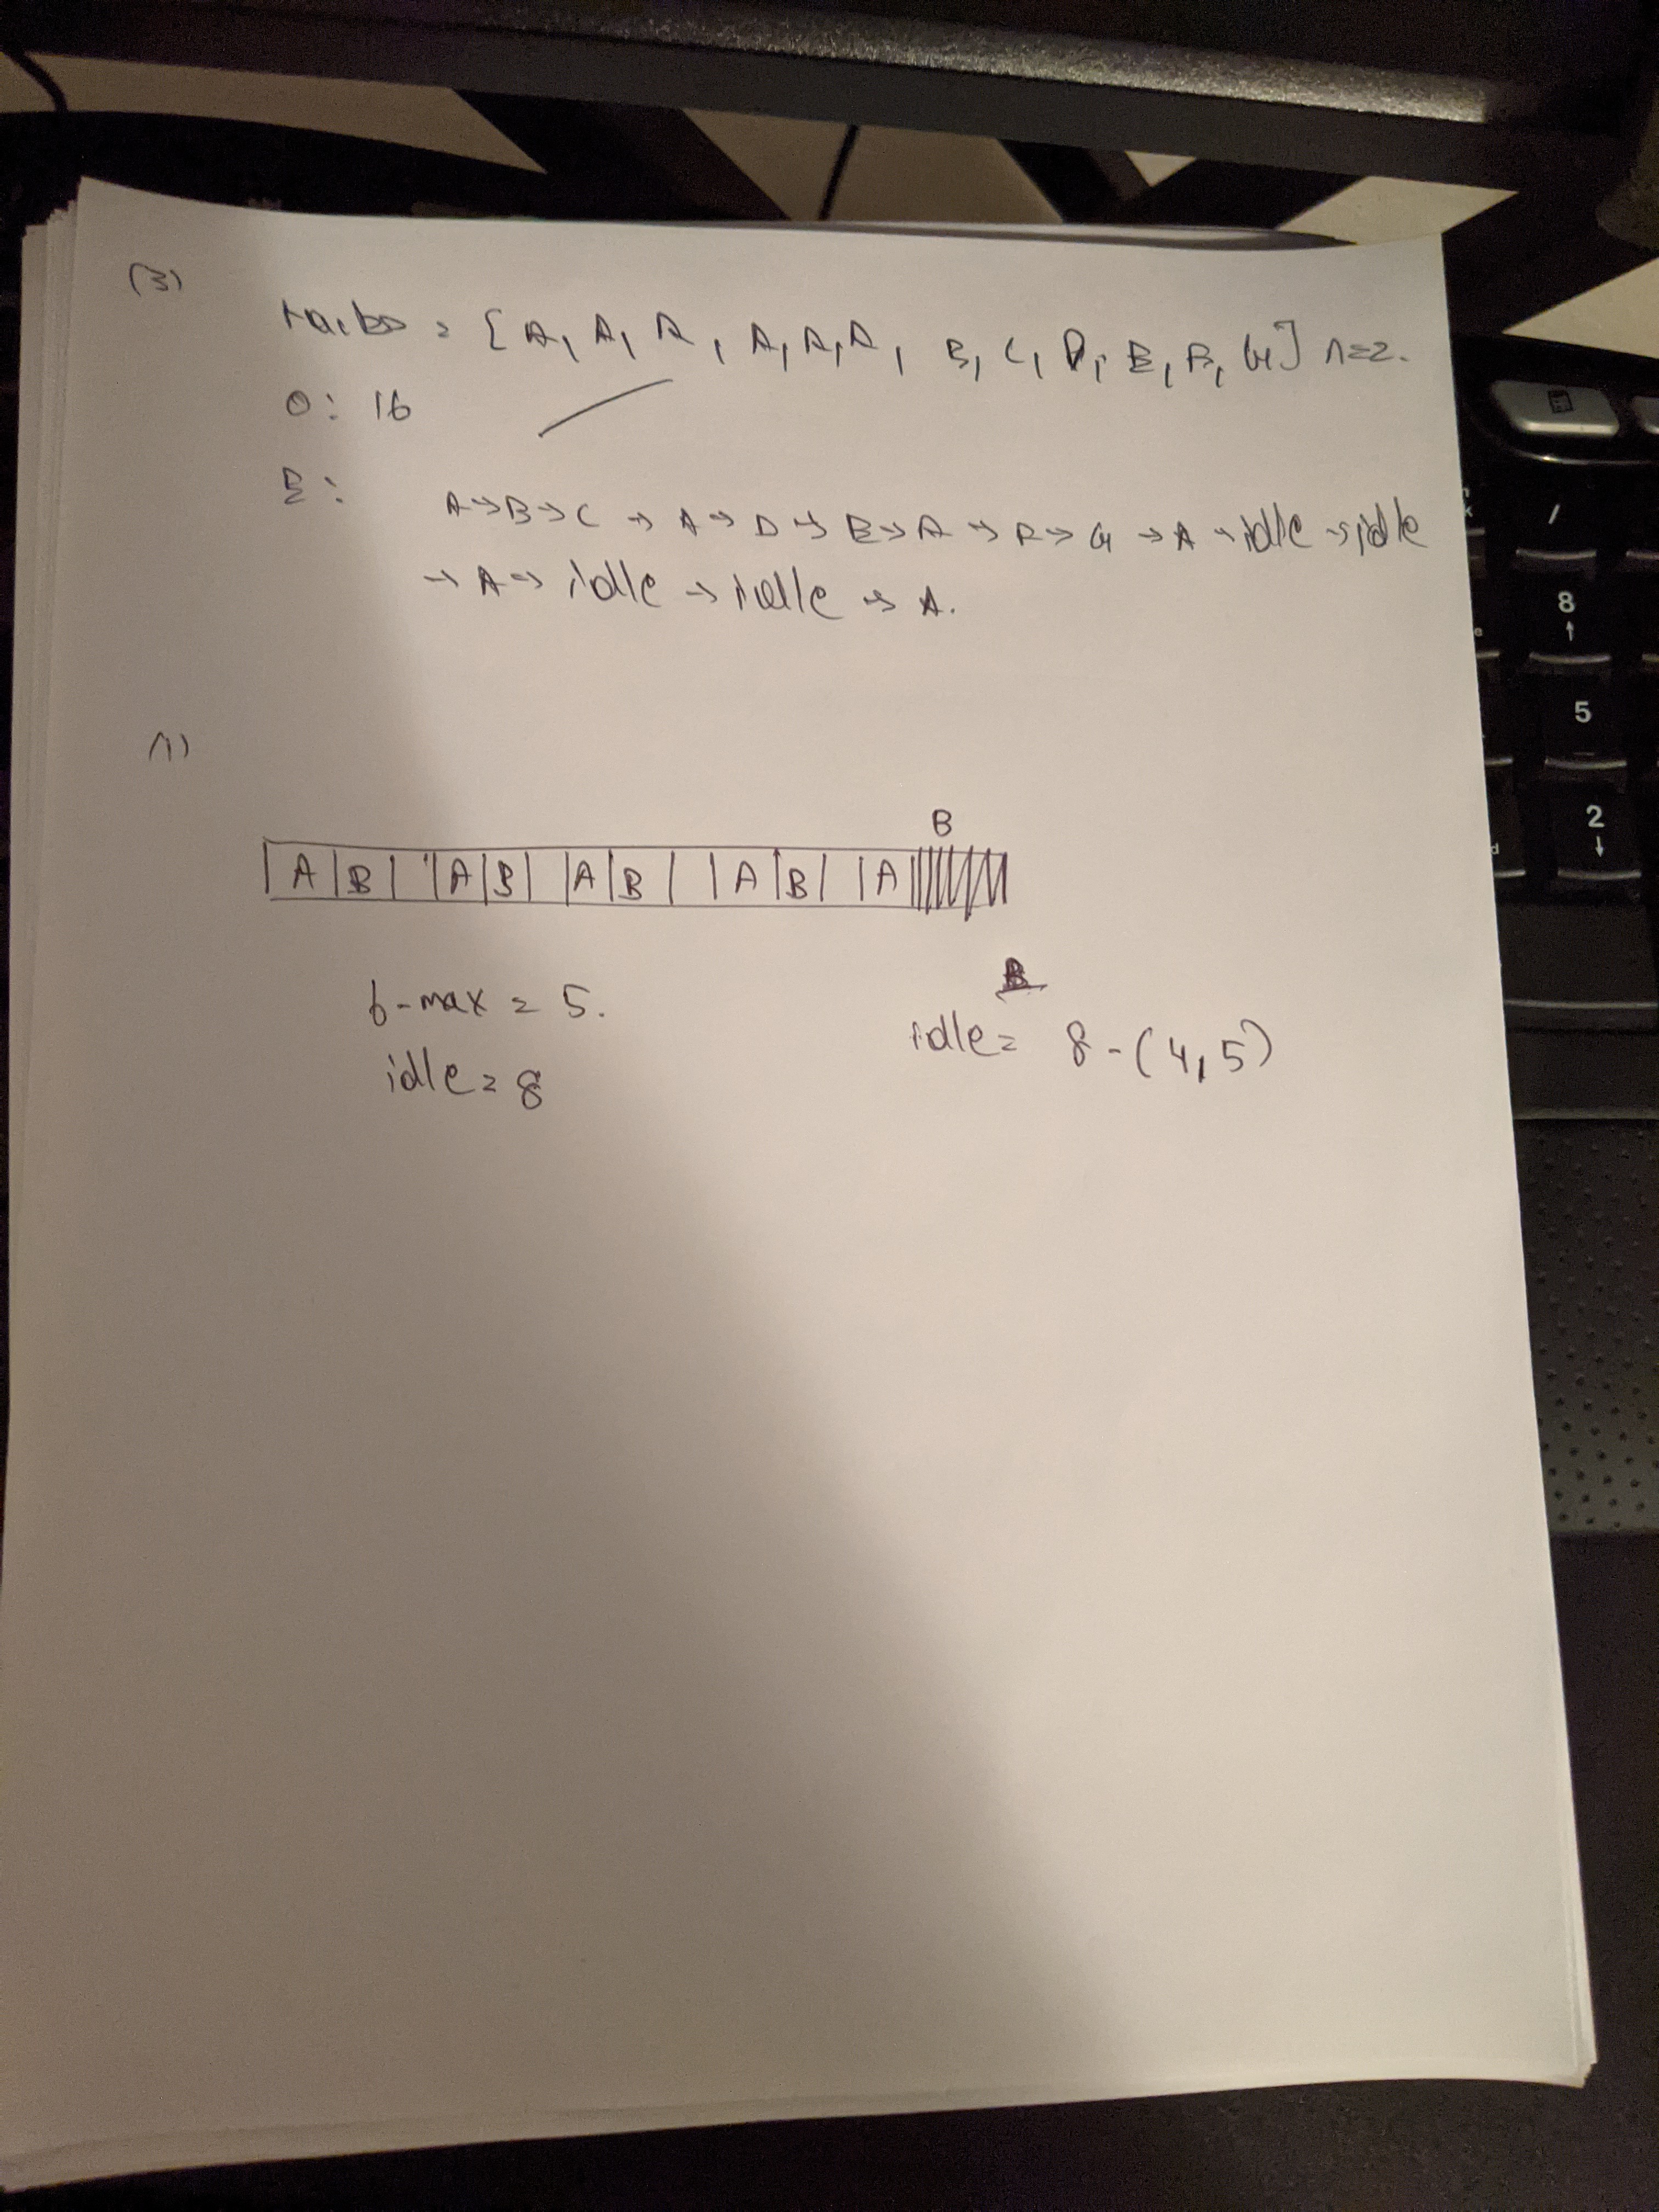 (3)
tasks = [A, A, A, A, A, A, B, C, D, E, F, G] n=2.
O: 16
E:
A → B → C → A → D → E → A → F → G → A → idle → idle
→ A → idle → idle → A.
(1)
B
A B A B A B A B A
B
f-max = 5.
idle = 8 - (4, 5)
idle = 8
8
↑
5
2
↓
/